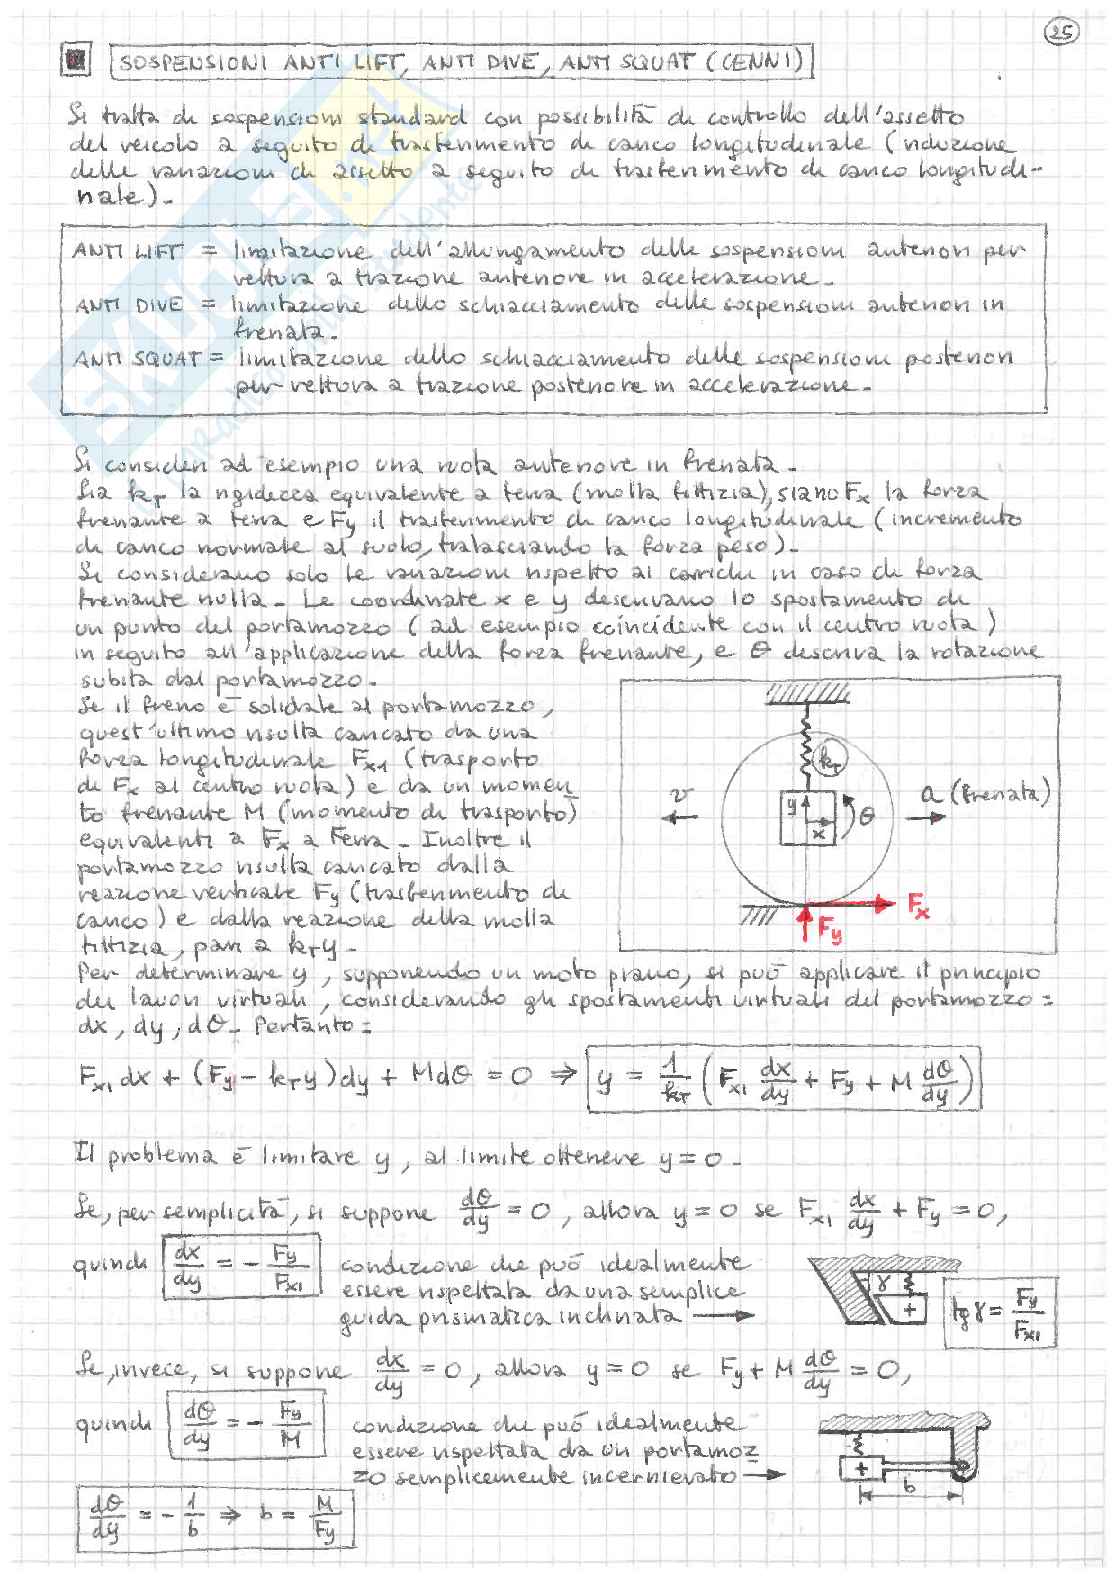 25
SOSPENSIONI ANTI LIFT, ANTI DIVE, ANTI SQUAT (CENNI)
Si tratta di sospensioni standard con possibilità di controllo dell'assetto
del veicolo a seguito di trasferimento di carico longitudinale (riduzione
delle variazioni di assetto a seguito di trasferimento di carico longitudi-
nale).
ANTI LIFT = limitazione dell'allungamento delle sospensioni anteriori per
vettura a trazione anteriore in accelerazione.
ANTI DIVE = limitazione dello schiacciamento delle sospensioni anteriori in
frenata.
ANTI SQUAT = limitazione dello schiacciamento delle sospensioni posteriori
per vettura a trazione posteriore in accelerazione.
Si consideri ad esempio una ruota anteriore in frenata.
Sia kT la rigidezza equivalente a terra (molla fittizia), siano Fx la forza
frenante a terra e Fy il trasferimento di carico longitudinale (incremento
di carico normale al suolo, tralasciando la forza peso).
Si considerano solo le variazioni rispetto ai carichi in caso di forza
frenante nulla. Le coordinate x e y descrivano lo spostamento di
un punto del portamozzo (ad esempio coincidente con il centro ruota)
in seguito all'applicazione della forza frenante, e θ descriva la rotazione
subita dal portamozzo.
Se il freno è solidale al portamozzo,
quest'ultimo risulta caricato da una
forza longitudinale Fx1 (trasporto
di Fx al centro ruota) e da un momen
to frenante M (momento di trasporto)
equivalenti a Fx a terra. Inoltre il
portamozzo risulta caricato dalla
reazione verticale Fy (trasferimento di
carico) e dalla reazione della molla
fittizia, pari a kTy.
kT
v
y
x
θ
a (frenata)
Fx
Fy
Per determinare y, supponendo un moto piano, si può applicare il principio
dei lavori virtuali, considerando gli spostamenti virtuali del portamozzo:
dx, dy, dθ. Pertanto:
Fx1 dx + (Fy - kTy)dy + Mdθ = 0 ⇒ y = 1/kT (Fx1 dx/dy + Fy + M dθ/dy)
Il problema è limitare y, al limite ottenere y = 0.
Se, per semplicità, si suppone dθ/dy = 0, allora y = 0 se Fx1 dx/dy + Fy = 0,
quindi dx/dy = - Fy/Fx1 condizione che può idealmente
essere rispettata da una semplice
guida prismatica inclinata →
γ
tg γ = Fy/Fx1
Se, invece, si suppone dx/dy = 0, allora y = 0 se Fy + M dθ/dy = 0,
quindi dθ/dy = - Fy/M condizione che può idealmente
essere rispettata da un portamoz
zo semplicemente incernierato →
b
dθ/dy = - 1/b ⇒ b = M/Fy